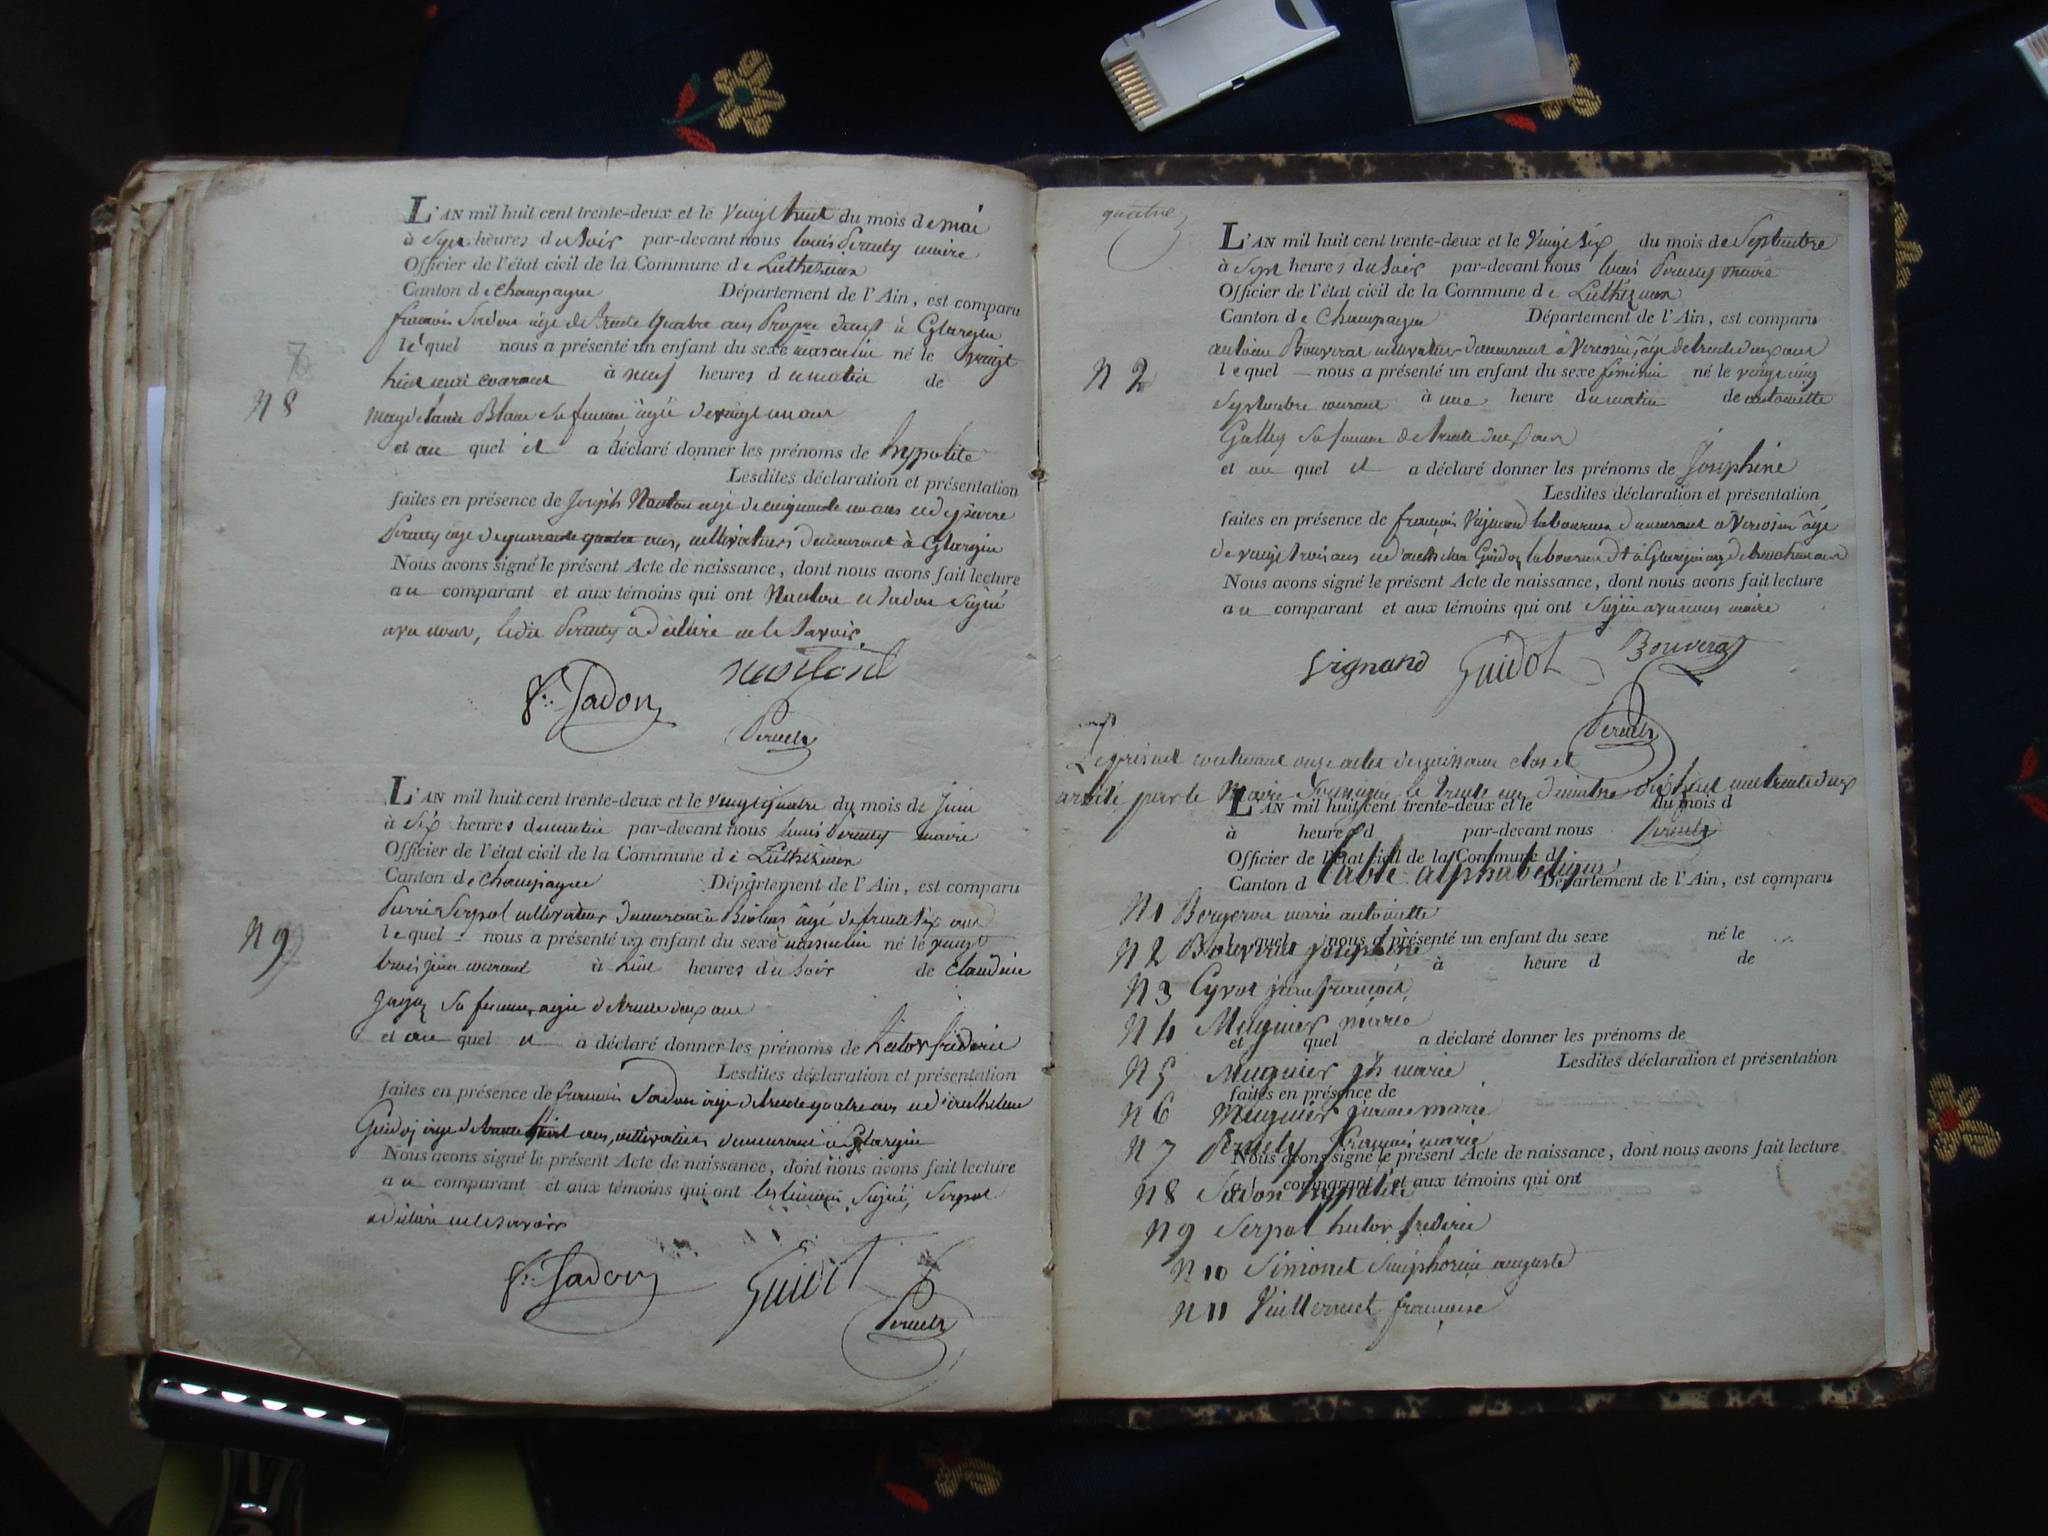 L'AN mil huit cent trente-deux et le vingt huit du mois de mai
à sept heures du soir par-devant nous louis Peruty maire
Officier de l'état civil de la Commune de Luthézieu
Canton de Champagne Département de l'Ain, est comparu
françois Sadon âgé de trente quatre ans
le quel nous a présenté un enfant du sexe masculin né le vingt
huit courant à neuf heures du matin de
N 8
Blanc sa femme âgée de vingt un ans
et au quel il a déclaré donner les prénoms de hyppolite
Lesdites déclaration et présentation
faites en présence de Joseph âgé de cinquante un ans
Peruty âgé de quarante quatre ans, cultivateurs demeurant à
Nous avons signé le présent Acte de naissance, dont nous avons fait lecture
au comparant et aux témoins qui ont et Sadon Signé
avec nous, ledit Peruty a déclaré ne le Savoir
f: Sadon
L'AN mil huit cent trente-deux et le vingt quatre du mois de Juin
à Six heures du matin par-devant nous louis Peruty maire
Officier de l'état civil de la Commune de Luthézieu
Canton de Champagne Département de l'Ain, est comparu
Pierre Serpol cultivateur demeurant à âgé de trente six ans
N 9
le quel nous a présenté un enfant du sexe masculin né le vingt
trois juin courant à huit heures du soir de Claudine
sa femme, âgée de trente deux ans
et au quel il a déclaré donner les prénoms de hector fréderic
Lesdites déclaration et présentation
faites en présence de françois Sadon âgé de trente quatre ans et d'anthelme
Guidoz âgé de trente huit ans, cultivateurs demeurant à
Nous avons signé le présent Acte de naissance, dont nous avons fait lecture
au comparant et aux témoins qui ont les témoins Signé, Serpol
a déclaré ne le savoir
f: Sadon Guidot
quatre
L'AN mil huit cent trente-deux et le Vingt six du mois de Septembre
à Sept heures du soir par-devant nous louis Peruty maire
Officier de l'état civil de la Commune de Luthézieu
Canton de Champagne Département de l'Ain, est comparu
antoine Bouverat cultivateur demeurant à Vercosin, âgé de trente deux ans
N 2
le quel nous a présenté un enfant du sexe féminin né le vingt cinq
Septembre courant à une heure du matin de antoinette
Galley sa femme de trente deux ans
et au quel il a déclaré donner les prénoms de Joséphine
Lesdites déclaration et présentation
faites en présence de françois Vignand laboureur demeurant à Vercosin âgé
de vingt trois ans et d'anthelme Guidoz laboureur
Nous avons signé le présent Acte de naissance, dont nous avons fait lecture
au comparant et aux témoins qui ont Signé avec nous maire
Vignand Guidot Bouverat
Le présent contenant onze actes de naissance clos et
arrêté par le Maire Soussigné le trente un décembre dix huit cent trente deux
L'AN mil huit cent trente-deux et le du mois d
à heure d par-devant nous
Officier de l'état civil de la Commune d
table alphabétique
Canton d Département de l'Ain, est comparu
N 1 Bergeron marie antoinette
le quel nous a présenté un enfant du sexe né le
N 2 Bouverat joséphine
à heure d de
N 3 Cyvot jean françois
N 4 Muguier marie
et quel a déclaré donner les prénoms de
Lesdites déclaration et présentation
N 5 Muguier marie
faites en présence de
N 6 Muguier marie
N 7 Peruty françois marie
Nous avons signé le présent Acte de naissance, dont nous avons fait lecture
a comparant et aux témoins qui ont
N 8 Sadon hyppolite
N 9 Serpol hector fréderic
N 10 Simonet Simphorien auguste
N 11 Vuillermet françoise